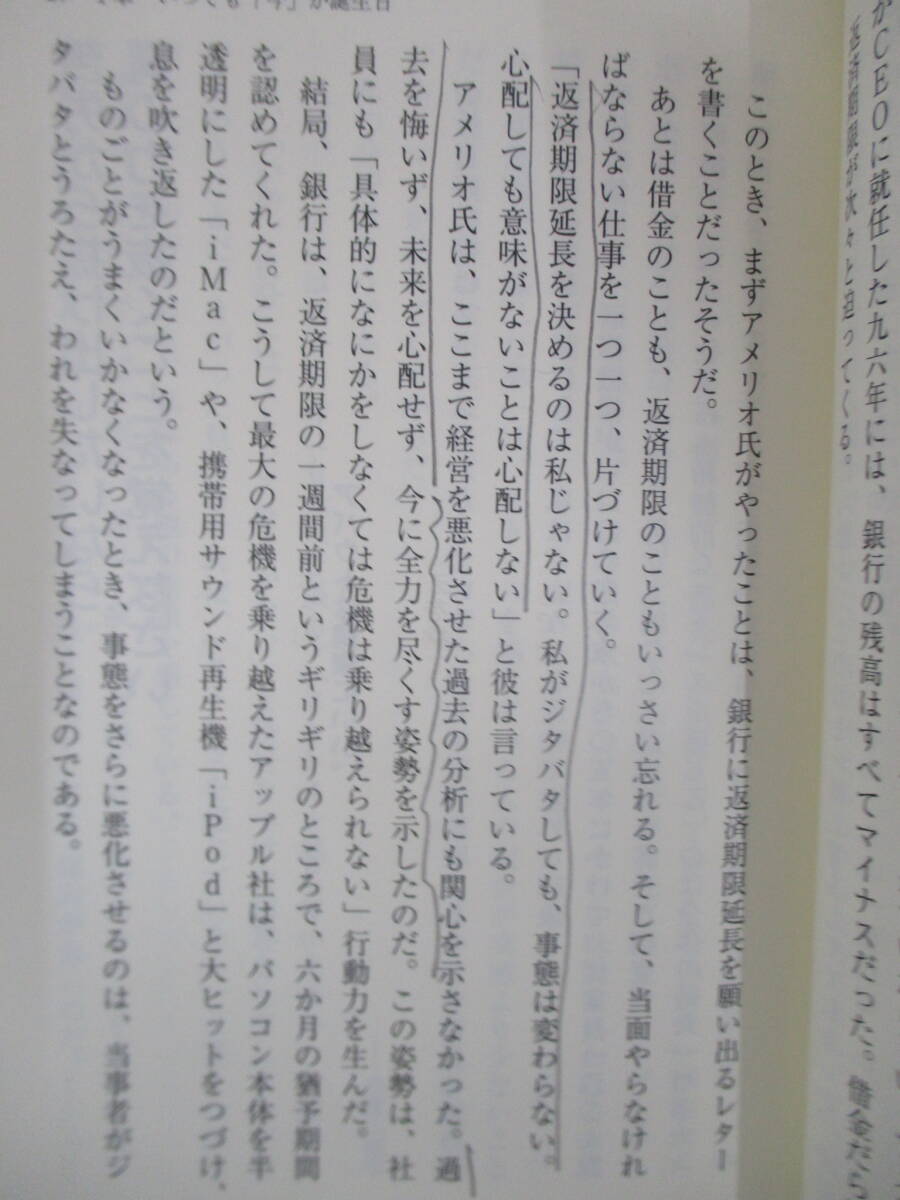 がCEOに就任した九六年には、銀行の残高はすべてマイナスだった。借金だら
返済期限が次々と迫ってくる。
このとき、まずアメリオ氏がやったことは、銀行に返済期限延長を願い出るレター
を書くことだったそうだ。
あとは借金のことも、返済期限のこともいっさい忘れる。そして、当面やらなけれ
ばならない仕事を一つ一つ、片づけていく。
「返済期限延長を決めるのは私じゃない。私がジタバタしても、事態は変わらない。
心配しても意味がないことは心配しない」と彼は言っている。
アメリオ氏は、ここまで経営を悪化させた過去の分析にも関心を示さなかった。過
去を悔いず、未来を心配せず、今に全力を尽くす姿勢を示したのだ。この姿勢は、社
員にも「具体的になにかをしなくては危機は乗り越えられない」行動力を生んだ。
結局、銀行は、返済期限の一週間前というギリギリのところで、六か月の猶予期間
を認めてくれた。こうして最大の危機を乗り越えたアップル社は、パソコン本体を半
透明にした「iMac」や、携帯用サウンド再生機「iPod」と大ヒットをつづけ、
息を吹き返したのだという。
ものごとがうまくいかなくなったとき、事態をさらに悪化させるのは、当事者がジ
タバタとうろたえ、われを失なってしまうことなのである。
いつでも「今」が誕生日